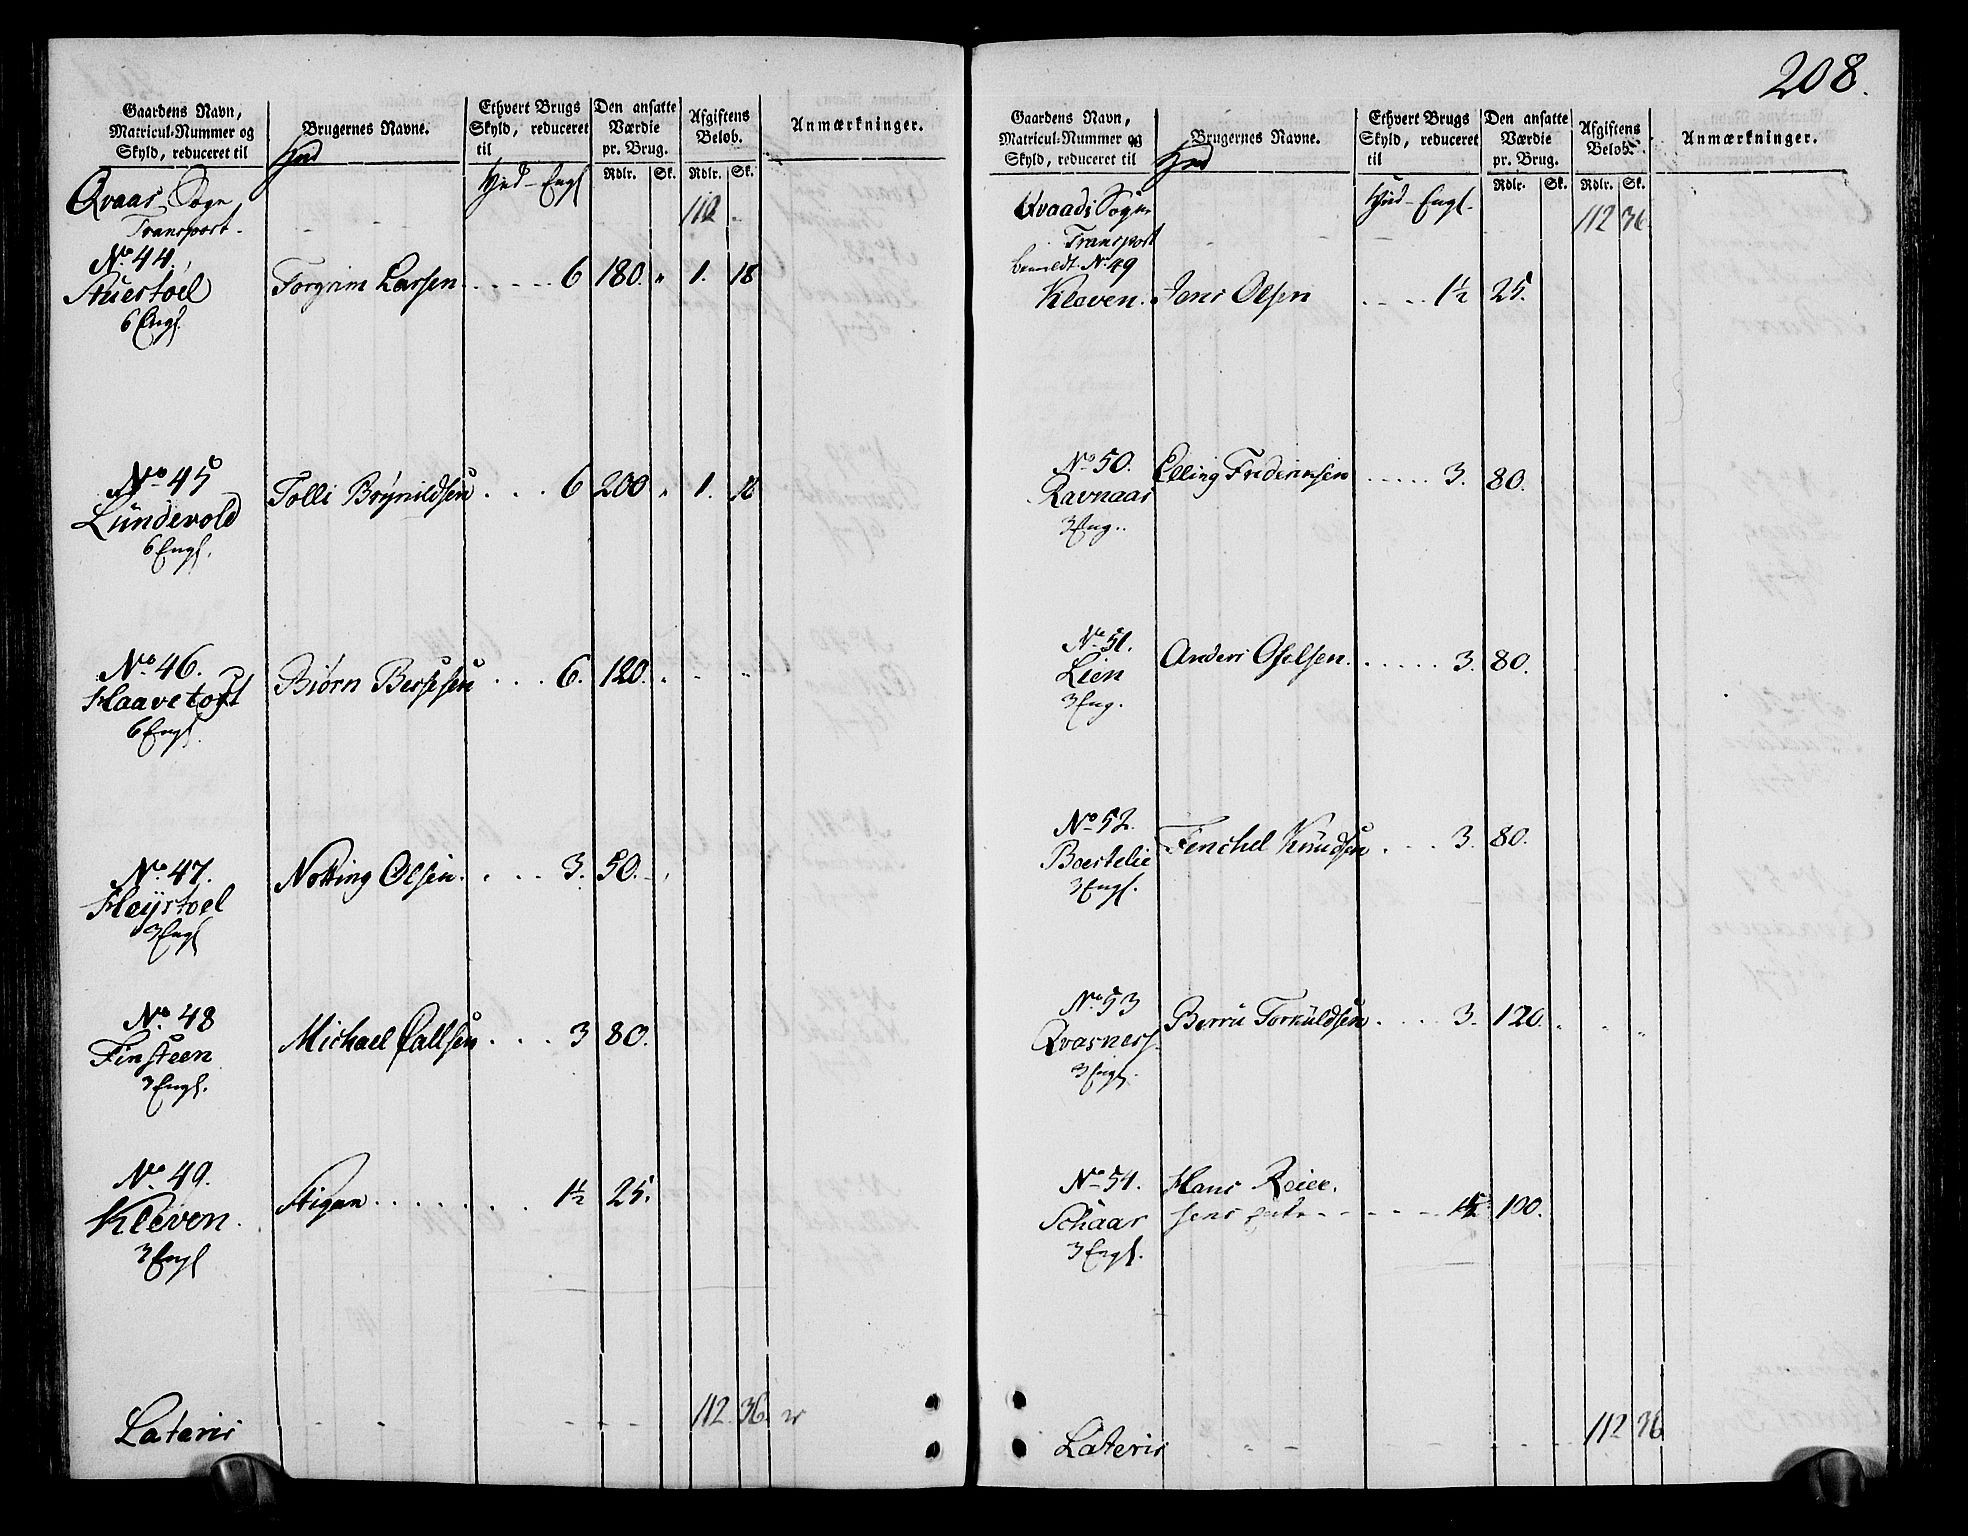 208.
Gaardens Navn,
Matricul-Nummer og
Skyld, reduceret til
Hud
Brugernes Navne.
Ethvert Brugs
Skyld, reduceret
til
Hud - Engl
Den ansatte
Værdie
pr. Brug.
Rdlr. Sk.
Afgiftens
Beløb.
Rdlr. Sk.
Anmærkninger.
Qvaas Sogn
Transport - - - 112 -
No. 44.
Stuestoel Torgrim Larsen . . . . . 6 180. " 1. 18
6 Engl.
No 45
Lündevold Tolli Brynildsen . . . 6 200 " 1. 18
6 Engl.
No. 46.
Haavetoft Biørn Bersesen . . . 6. 120. " - "
6 Engl.
No. 47.
Heystoel Notting Olsen. . . . 3. 50. - "
3 Engl
No. 48
Finsteen Michael Pallsen . . . 3 80.
3 Engl.
No. 49.
Kleven. Stigan . . . . . . . 1½ 25.
3 Engl
Lateris - - - - - 112 36.
Gaardens Navn,
Matricul-Nummer og
Skyld, reduceret til
Hud
Brugernes Navne.
Ethvert Brugs
Skyld, reduceret
til
Hud - Engl.
Den ansatte
Værdie
pr. Brug.
Rdlr. Sk.
Afgiftens
Beløb.
Rdlr. Sk.
Anmærkninger.
Qvaads Sogn
Transport - - - 112 36
bemeldt No. 49
Kleven. Jens Olsen . . . . 1½ 25.
No. 50.
Ravnaas Elling Frideriksen . . . . . 3. 80.
3 Eng..
No. 51.
Lien Anders Oselsen. . . . . . 3. 80.
3 Eng.
No 52.
Boestelie Fenchel Knüdsen . . . . 3. 80.
3 Engl.
No 53
Qvasness. Berru Torkildsen . . . . 3. 120. " " "
3 Engl.
No 54. Hans Reier.
Schaar sens - - - - - - 100.
3 Engl.
Lateris " - - - - 112 36